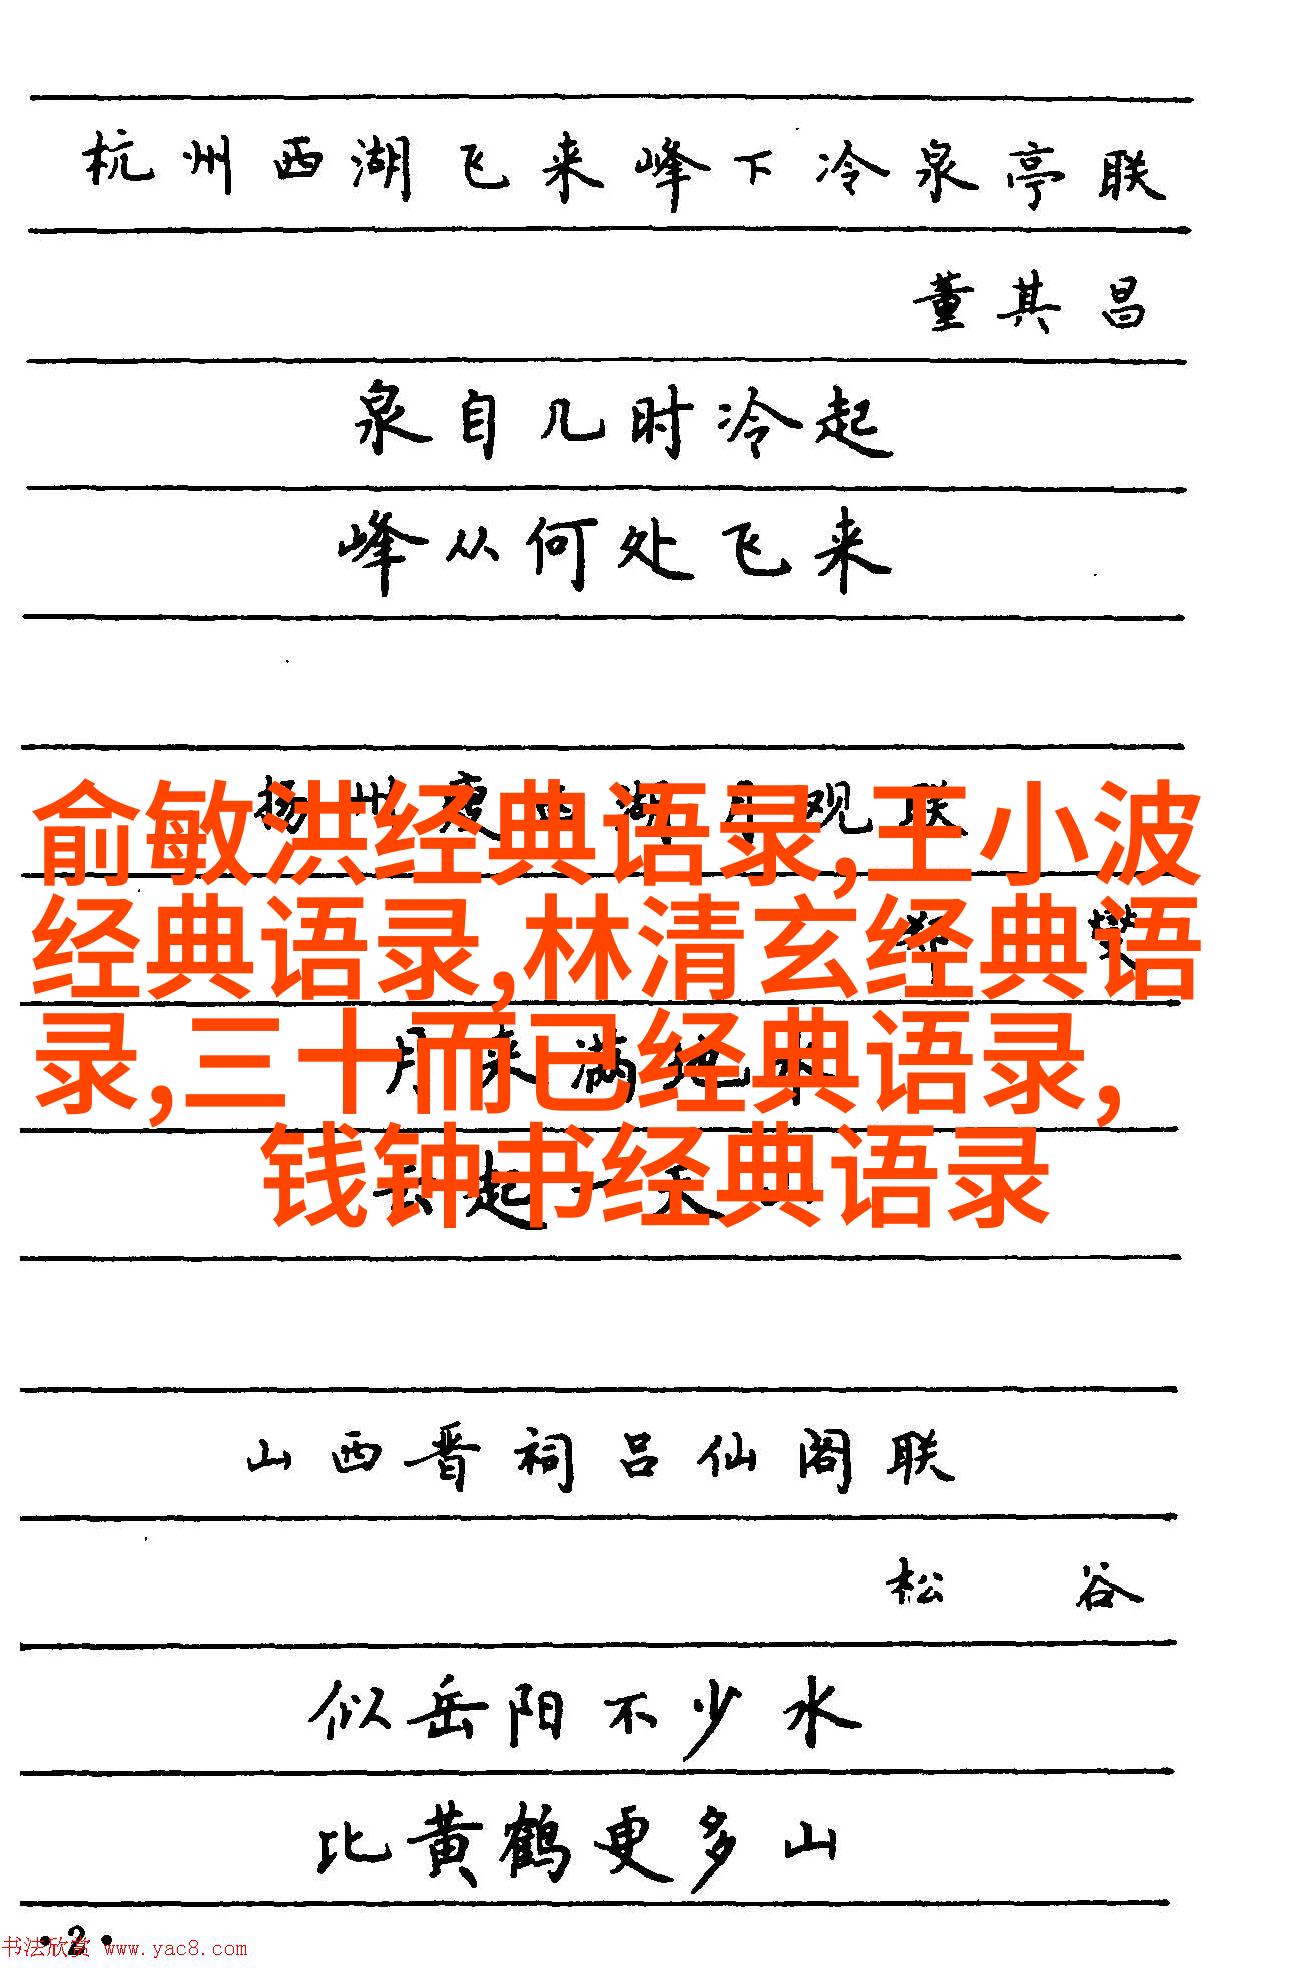 杭州西湖飞来峰下冷泉亭联
董其昌
泉自几时冷起
峰从何处飞来
俞敏洪经典语录,王小波
经典语录,林清玄经典语
录,三十而已经典语录,
钱钟书经典语录
山西晋祠吕仙阁联
松 谷
似岳阳不少水
比黄鹤更多山
·2·
书法欣赏 www.yac8.com